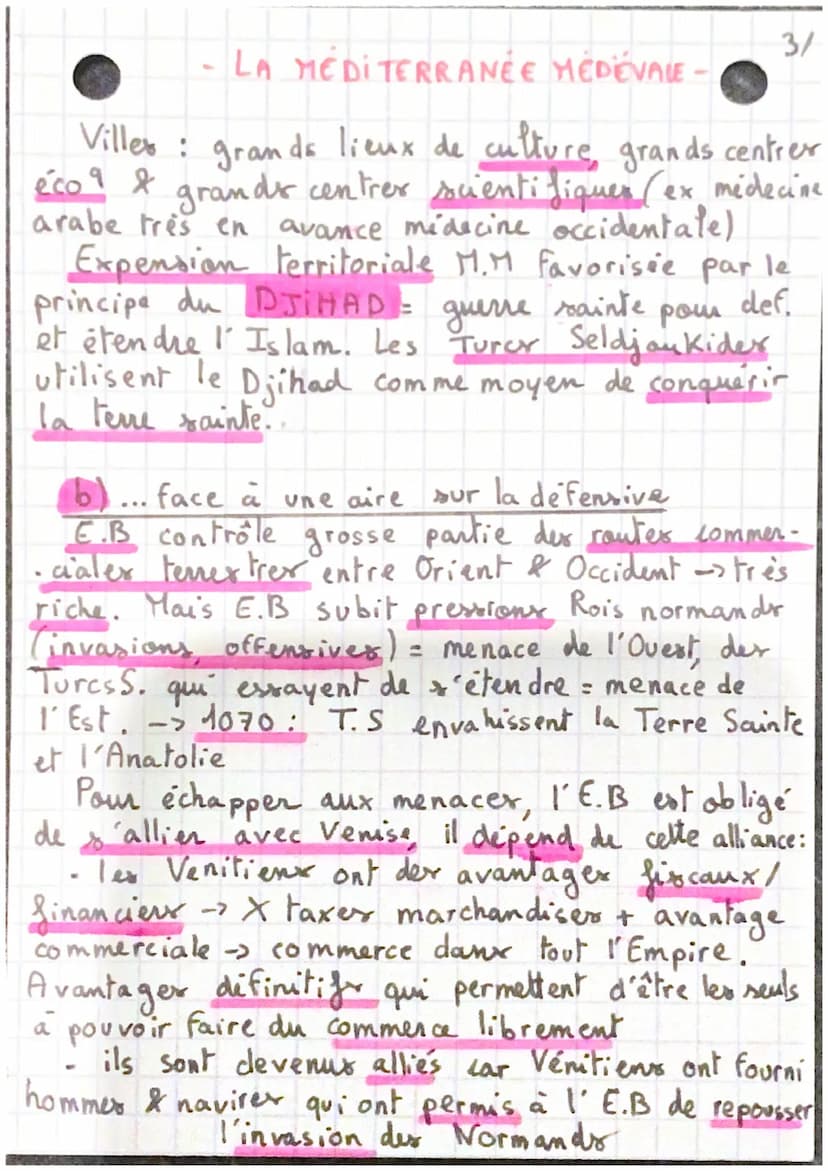 3/
- LA MÉDITERRANÉE MÉDIÉVALE -
Villes : grands lieux de culture, grands centres
éco q & grands centres scientifiques (ex médecine
arabe très en avance médecine occidentale)
Expension territoriale M.M favorisée par le
principe du DJIHAD = guerre sainte pour def.
et étendre l'Islam. Les Turcs Seldjoukides
utilisent le Djihad comme moyen de conquérir
la terre sainte.
b) ... face à une aire sur la défensive
E.B contrôle grosse partie des routes commer-
-ciales terrestres entre Orient & Occident -> très
riche. Mais E.B subit pressions Rois normands
(invasions, offensives) = menace de l'Ouest, des
TurcsS. qui essayent de s'étendre = menace de
l'Est. -> 1070 : T.S envahissent la Terre Sainte
et l'Anatolie
Pour échapper aux menaces, l'E.B est obligé
de s'allier avec Venise, il dépend de cette alliance:
- les Venitiens ont des avantages fiscaux/
financiers -> X taxes marchandises + avantage
commerciale -> commerce dans tout l'Empire.
Avantages définitifs qui permettent d'être les seuls
à pouvoir faire du commerce librement
- ils sont devenus alliés car Vénitiens ont fourni
hommes & navires qui ont permis à l'E.B de repousser
l'invasion des Normands